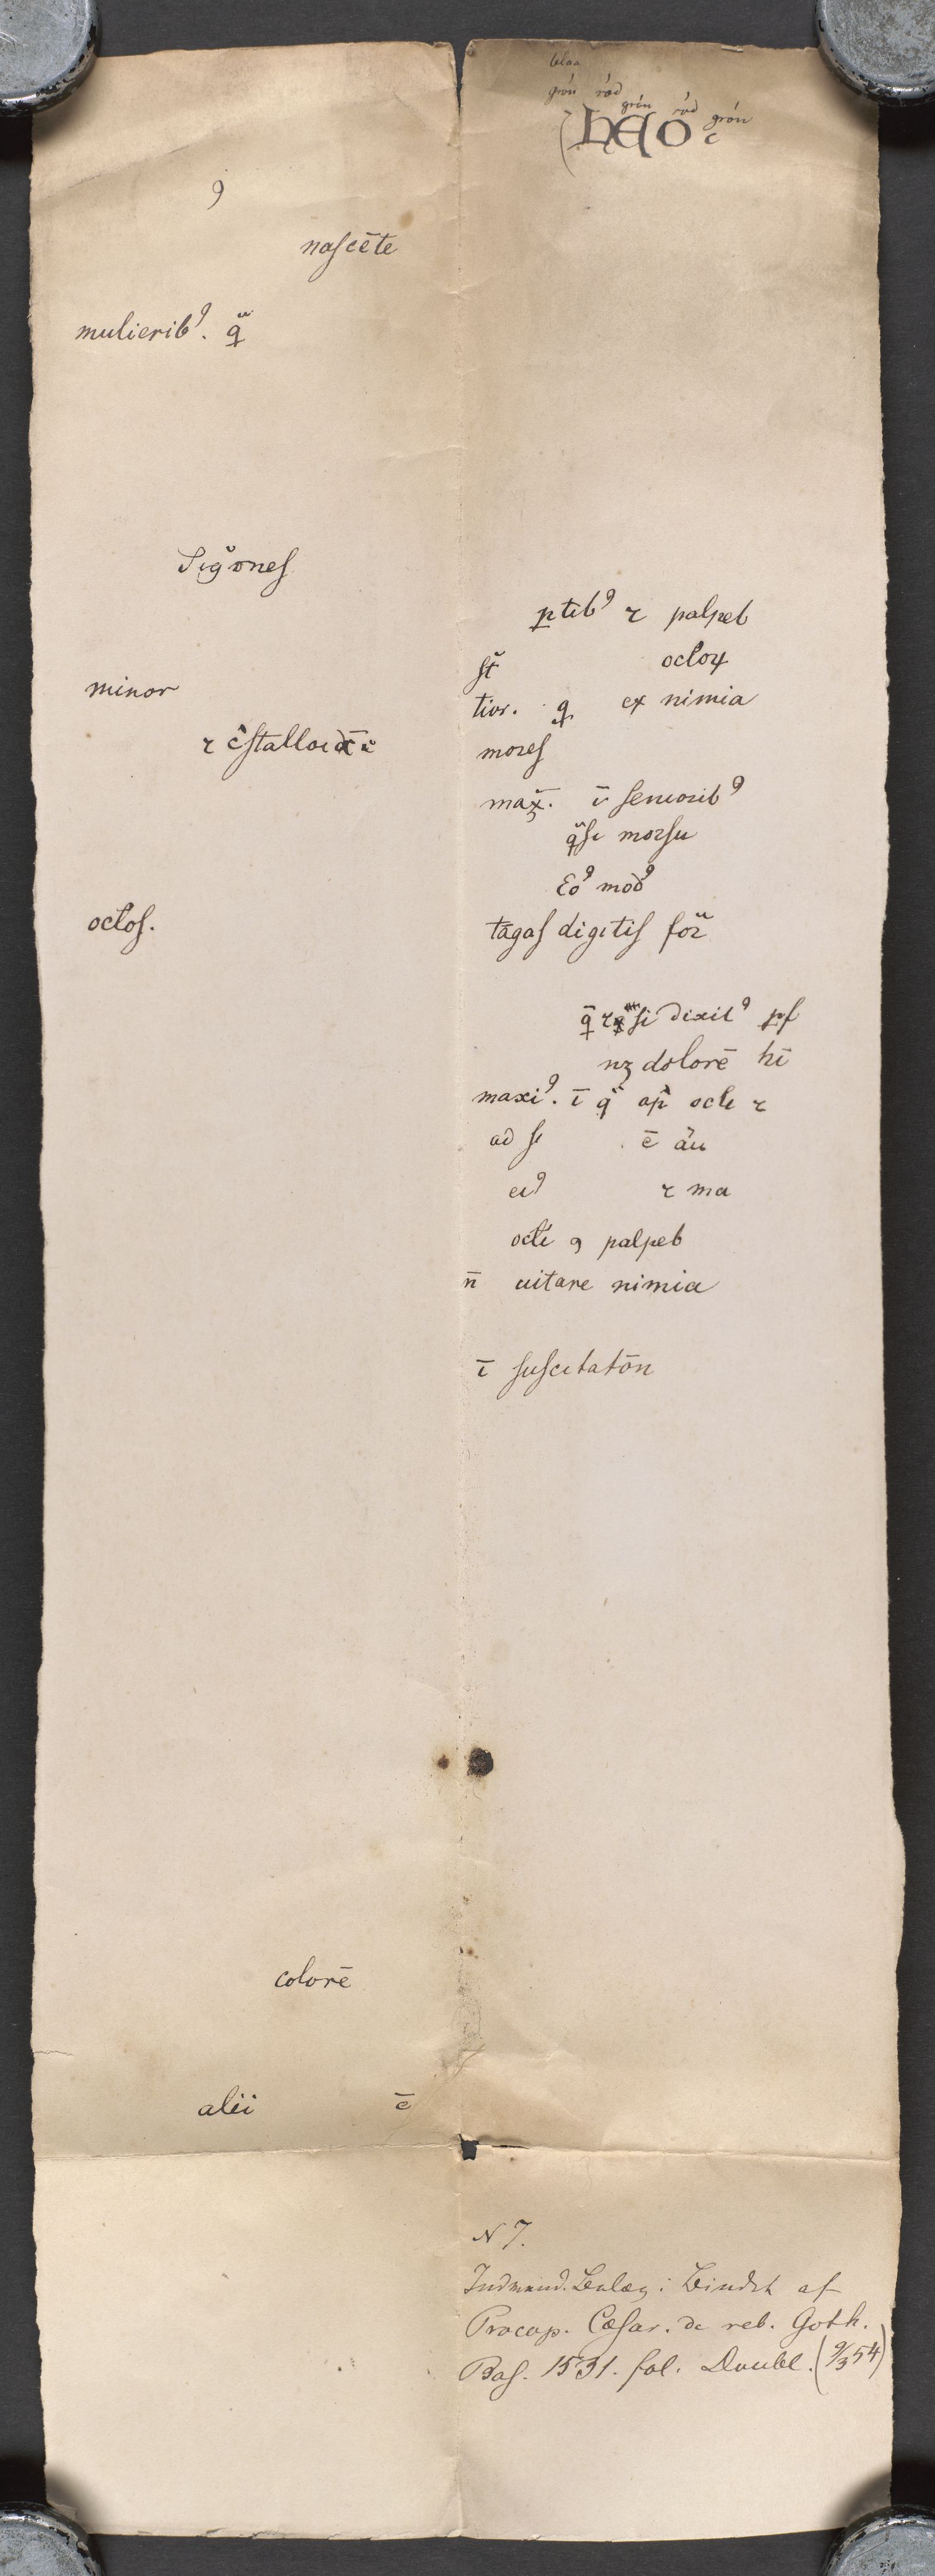 blaa
grön röd
grön röd grön
HEO c
9
nascēte
mulierib9. qͧ
Sigͦones
minor
⁊ cͥstalloid ē
octos.
colorē
alii ē
ꝑtib9 ⁊ palpeb
sͭ octoꝝ
tior. ꝙ ex nimia
mores
max. ī seniorib9
qͣsi morsu
Eo9 mod9
tāgas digitis forͣ
q̄ ⁊ si dixit9 ꝑf
nꝫ dolorē hī
maxi9. ī qͣ ap̄ octi ⁊
ad se ē au
ei9 ⁊ ma
octi ꝯ palpeb
n̄ uitare nimia
ī suscitatōn
N 7.
Indvend. Belæg i Bindet af
Procop. Cæsar. de reb. Goth.
Bas. 1531. fol. Doubl. (9/3 54)